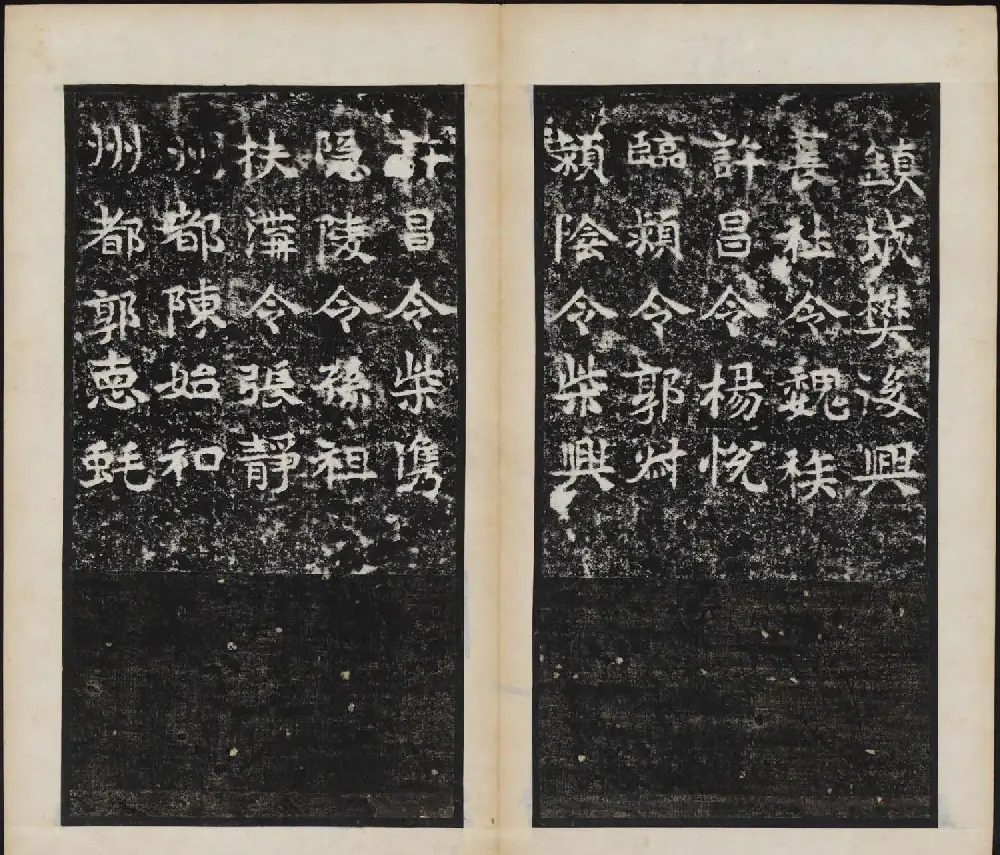 鎮城樊後興
長社令魏𥞇
許昌令楊悅
臨潁令郭
潁陰令柴興
許昌令柴儁
隱陵令孫祖
扶溝令張靜
州都陳始和
州都郭惠蚝